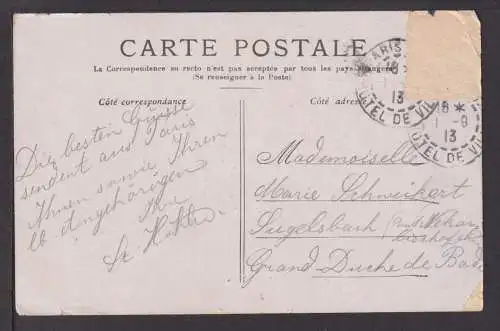 CARTE POSTALE
La Correspondence au recto n'est pas acceptée par tous les pays étrangers
(Se renseigner à la Poste)
Côté correspondance
Côté adresse
Die besten Grüsse
sendent aus Paris
Ihnen sowie Ihren
lb Angehörigen
Ihr
Mademoiselle
Marie Schweikert
Sugelsbach
Grand Duché de Bade
PARIS
18 *
13
HOTEL DE VIL
18 *
1 - 9
13
HOTEL DE VI